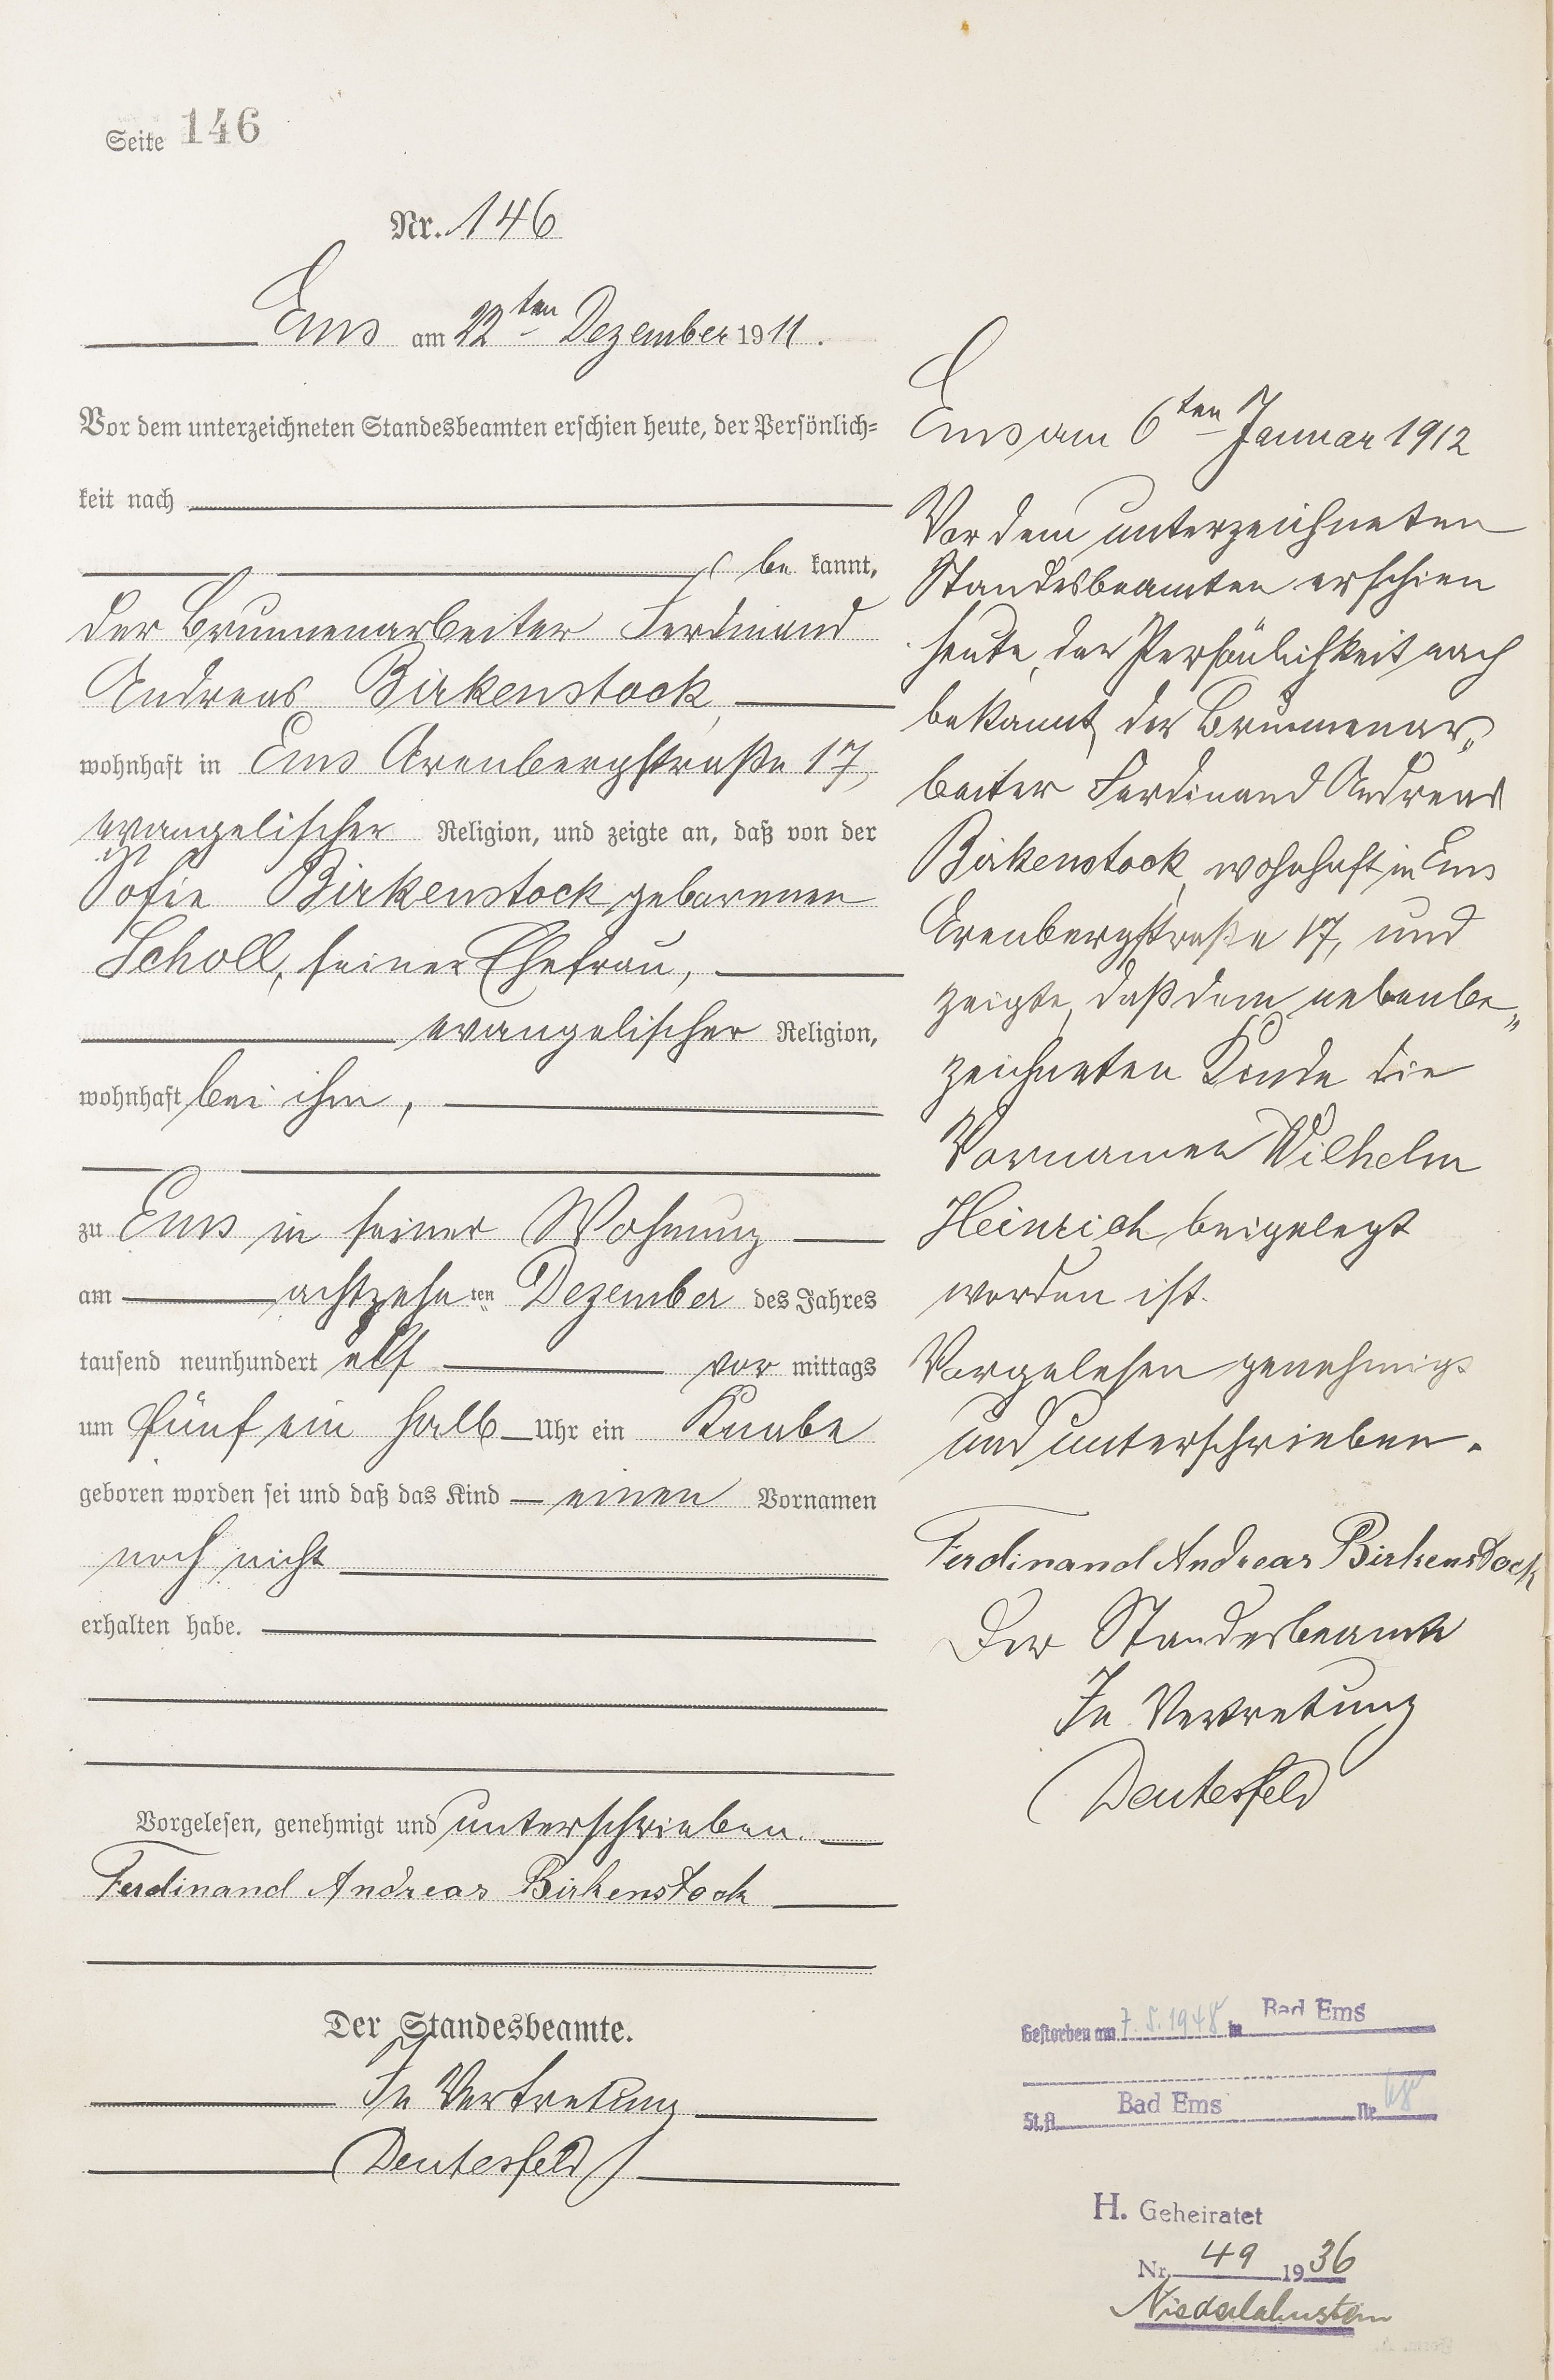 Seite 146
Nr. 146
Ems am 22ten Dezember 1911.
Vor dem unterzeichneten Standesbeamten erschien heute, der Persönlich=
keit nach
be kannt,
der Brunnenarbeiter Ferdinand
Andreas Birkenstock,
wohnhaft in Ems Arenbergstraße 17,
evangelischer Religion, und zeigte an, daß von der
Sofie Birkenstock geborenen
Scholl, seiner Ehefrau,
evangelischer Religion,
wohnhaft bei ihm,
zu Ems in seiner Wohnung
am achtzehnten Dezember des Jahres
tausend neunhundert elf vor mittags
um fünf ein halb Uhr ein Knabe
geboren worden sei und daß das Kind einen Vornamen
noch nicht
erhalten habe.
Vorgelesen, genehmigt und unterschrieben.
Ferdinand Andreas Birkenstock
Der Standesbeamte.
In Vertretung
Deutesfeld
Ems am 6ten Januar 1912
Vor dem unterzeichneten
Standesbeamten erschien
heute, der Persönlichkeit nach
bekannt, der Brunnenar„
beiter Ferdinand Andreas
Birkenstock, wohnhaft in Ems
Arenbergstraße 17, und
zeigte, daß dem nebenbe„
zeichneten Kinde die
Vornamen Wilhelm
Heinrich beigelegt
worden ist.
Vorgelesen genehmigt
und unterschrieben.
Ferdinand Andreas Birkenstock
Der Standesbeamte
In Vertretung
Deutesfeld
Gestorben am 7.5.1948 in Bad Ems
St.A. Bad Ems Nr. 68
H. Geheiratet
Nr. 49 1936
Niederlahnstein